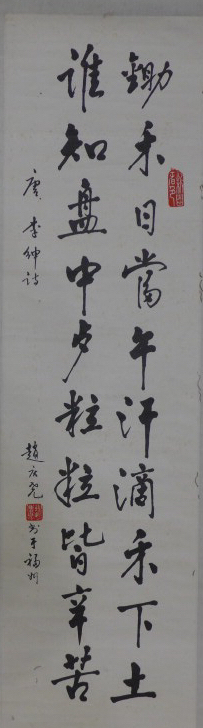 鋤禾日當午汗滴禾下土
誰知盘中夕粒粒皆辛苦
唐 李绅诗
趙
书于福州